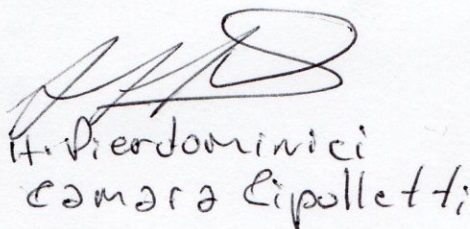 H. Pierdominici
Camara Cipolletti